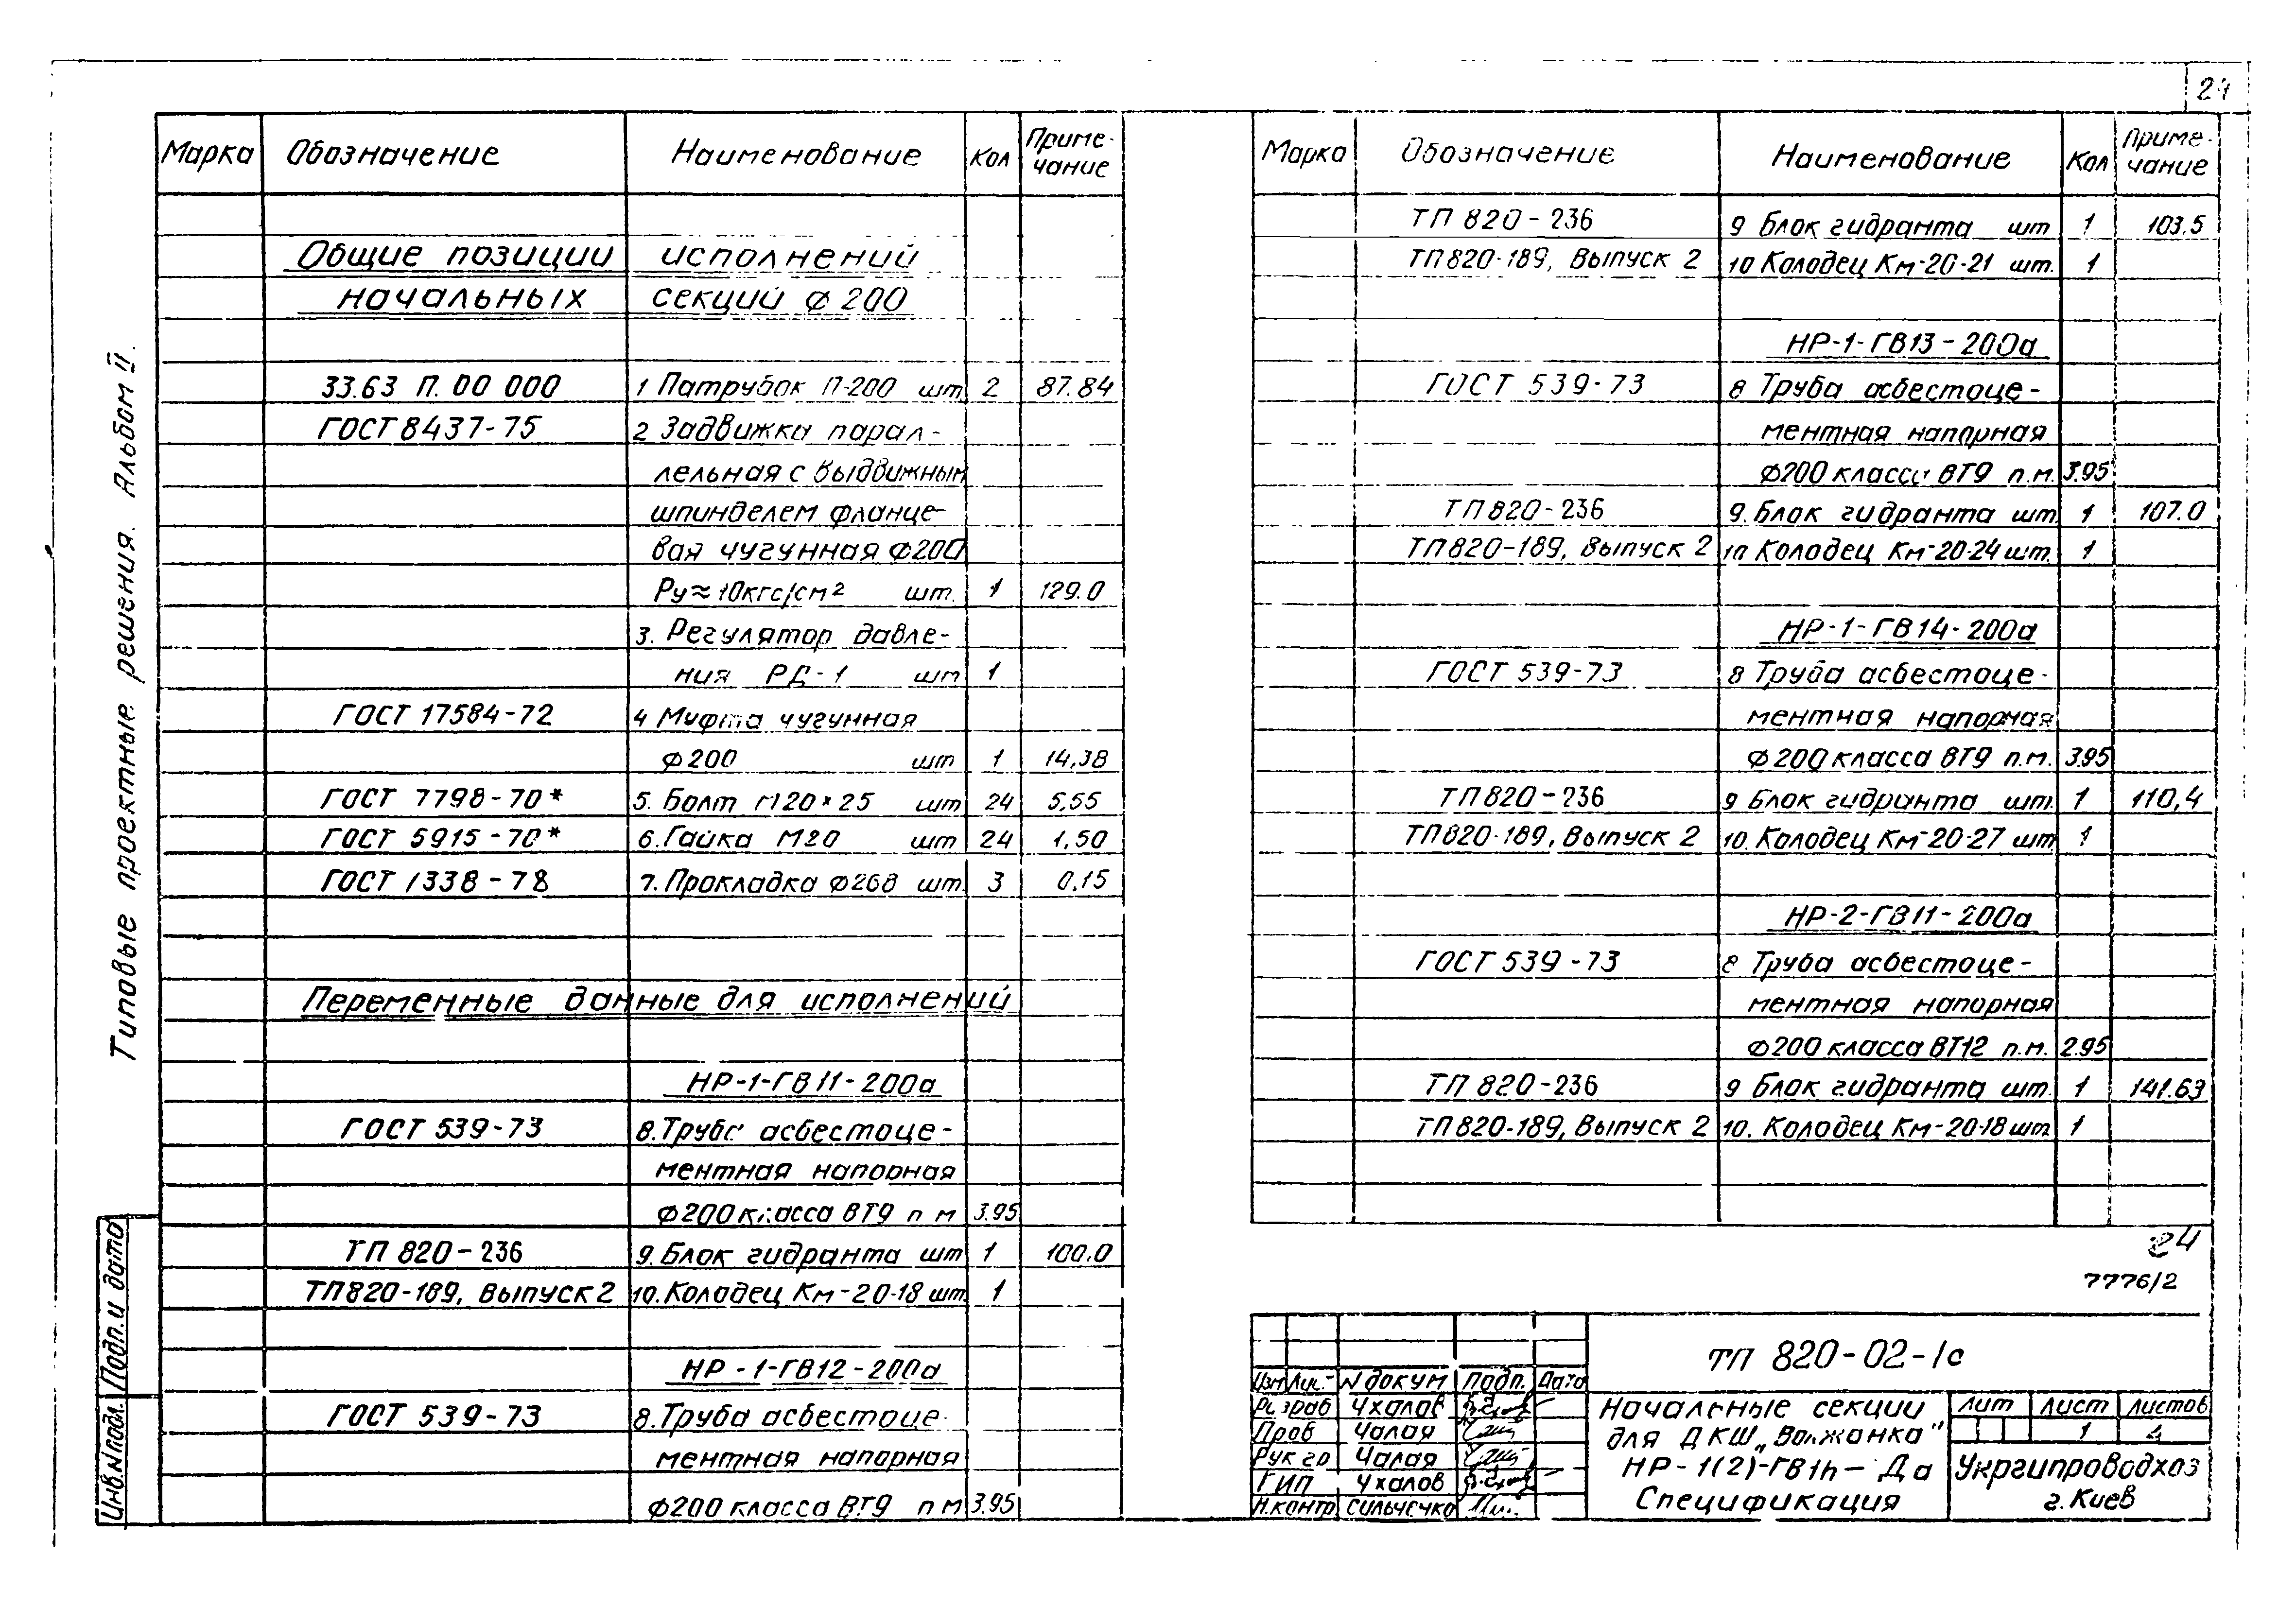 24
Типовые проектные решения. Альбом II.
Марка Обозначение Наименование Кол Приме-
чание
Общие позиции исполнений
начальных секций ф 200
33.63 П. 00 000 1 Патрубок П-200 шт 2 87.84
ГОСТ 8437-75 2 Задвижка парал-
лельная с выдвижным
шпинделем фланце-
вая чугунная ф200
Ру≈10кгс/см2 шт. 1 129.0
3. Регулятор давле-
ния РД-1 шт 1
ГОСТ 17584-72 4 Муфта чугунная
ф200 шт 1 14,38
ГОСТ 7798-70* 5. Болт М20×25 шт 24 5.55
ГОСТ 5915-70* 6. Гайка М20 шт 24 1,50
ГОСТ 1338-78 7. Прокладка ф268 шт. 3 0,15
Переменные данные для исполнений
НР-1-ГВ11-200а
ГОСТ 539-73 8. Труба асбестоце-
ментная напорная
ф200 класса ВТ9 п м 3.95
ТП 820-236 9. Блок гидранта шт 1 100.0
ТП820-189, Выпуск 2 10. Колодец Км-20-18 шт. 1
НР-1-ГВ12-200а
ГОСТ 539-73 8. Труба асбестоце-
ментная напорная
ф200 класса ВТ9 п м 3.95
Марка Обозначение Наименование Кол Приме-
чание
ТП 820-236 9 Блок гидранта шт 1 103.5
ТП820-189, Выпуск 2 10 Колодец Км-20-21 шт. 1
НР-1-ГВ13-200а
ГОСТ 539-73 8 Труба асбестоце-
ментная напорная
ф200 класса ВТ9 п.м. 3.95
ТП820-236 9. Блок гидранта шт. 1 107.0
ТП820-189, Выпуск 2 10 Колодец Км-20-24 шт. 1
НР-1-ГВ14-200а
ГОСТ 539-73 8 Труба асбестоце-
ментная напорная
ф200 класса ВТ9 п.м. 3.95
ТП820-236 9 Блок гидранта шт. 1 110,4
ТП820-189, Выпуск 2 10. Колодец Км-20-27 шт 1
НР-2-ГВ11-200а
ГОСТ 539-73 8 Труба асбестоце-
ментная напорная
ф200 класса ВТ12 п.м. 2.95
ТП 820-236 9 Блок гидранта шт. 1 141.63
ТП820-189, Выпуск 2 10. Колодец Км-20-18 шт. 1
24
7776/2
ТП 820-02-1с
Изм Лис. N докум Подп. Дата
Разраб Чхалов
Пров Чалая
Рук гр Чалая
ГИП Чхалов
Н.контр Сильченко
Начальные секции
для ДКШ „Волжанка"
НР-1(2)-ГВ1h-Да
Спецификация
Лит Лист Листов
1 4
Укргипроводхоз
г. Киев
Инв.N подл. Подп. и дата